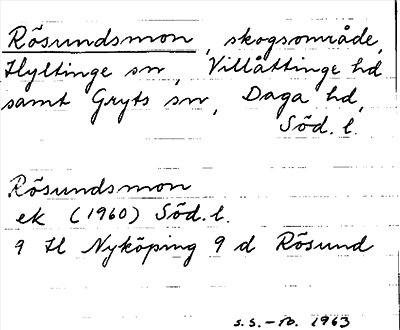 Rösundsmon, skogsområde,
Hyltinge sn, Villåttinge hd
samt Gryts sn, Daga hd,
Söd. l.
Rösundsmon
ek (1960) Söd. l.
9 H Nyköping 9 d Rösund
s.s. – 1963